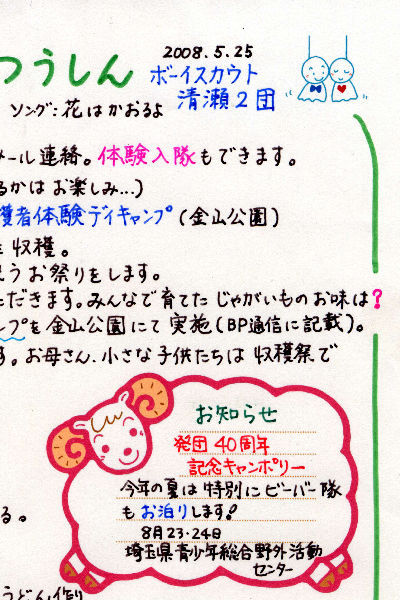 2008.5.25
つうしん ボーイスカウト
清瀬2団
ソング:花はかおるよ
メール連絡。体験入隊もできます。
るかはお楽しみ...)
護者体験デイキャンプ(金山公園)
収穫。
うお祭りをします。
ただきます。みんなで育てたじゃがいものお味は?
プを金山公園にて実施(BP通信に記載)。
す。お母さん、小さな子供たちは収穫祭で
お知らせ
発団40周年
記念キャンポリー
今年の夏は特別にビーバー隊
もお泊りします!
8月23・24日
埼玉県青少年総合野外活動
センター
る。
うどん作り